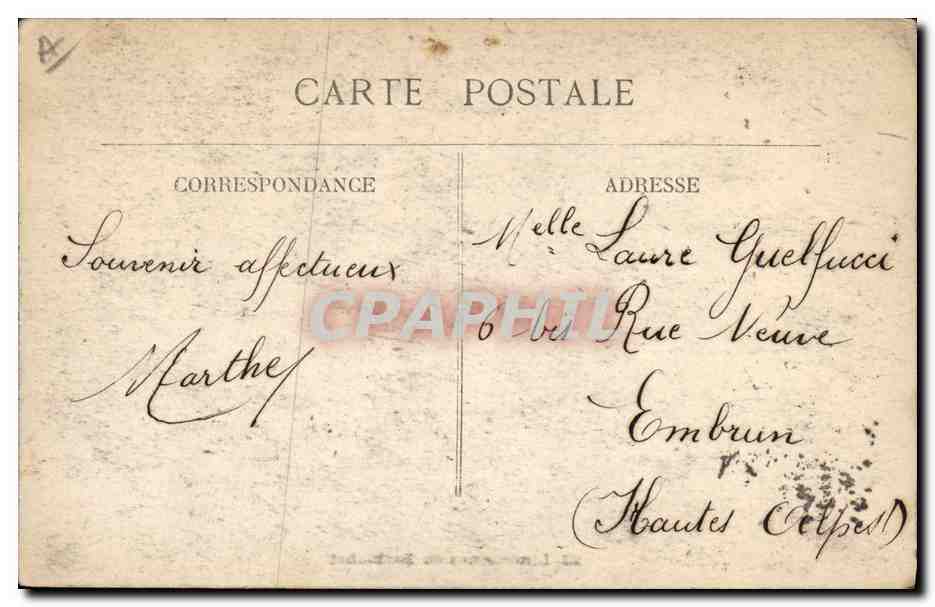 A
CARTE POSTALE
CORRESPONDANCE
Souvenir affectueux
Marthe
ADRESSE
Melle Laure Guelfucci
6 bis Rue Neuve
Embrun
(Hautes Alpes)
CPAPHIL